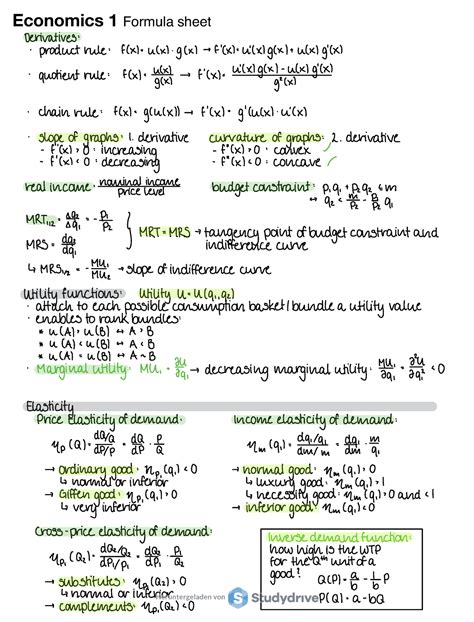 Economics 1 Formula sheet
Derivatives:
· product rule: f(x) = u(x) · g(x) → f'(x) = u'(x) g(x) + u(x) g'(x)
· quotient rule: f(x) = u(x)/g(x) → f'(x) = u'(x) g(x) - u(x) g'(x) / g²(x)
· chain rule: f(x) = g(u(x)) → f'(x) = g'(u(x)) · u'(x)
· slope of graphs: 1. derivative
- f'(x) > 0 : increasing
- f'(x) < 0 : decreasing
curvature of graphs: 2. derivative
- f''(x) > 0 : convex
- f''(x) < 0 : concave
real income: nominal income / price level
budget constraint: p₁q₁ + p₂q₂ ≤ m
↔ q₂ ≤ m/p₂ - p₁/p₂ q₁
MRT₁,₂ = Δq₂/Δq₁ = - p₁/p₂
MRS = dq₂/dq₁
MRT = MRS → tangency point of budget constraint and
indifference curve
↳ MRS₁/₂ = - MU₁/MU₂ → slope of indifference curve
Utility functions: Utility U = U(q₁,q₂)
· attach to each possible consumption basket/bundle a utility value
· enables to rank bundles:
* u(A) > u(B) ↔ A > B
* u(A) < u(B) ↔ A < B
* u(A) = u(B) ↔ A ~ B
· Marginal utility: MU₁ = ∂U/∂q₁ → decreasing marginal utility: MU₁/∂q₁ = ∂²U/∂q₁² < 0
Elasticity
Price elasticity of demand:
ηp(Q) = dQ/Q / dP/P = dQ/dP · P/Q
→ ordinary good: ηp₁(q₁) < 0
↳ normal or inferior
→ Giffen good: ηp₁(q₁) > 0
↳ very inferior
Income elasticity of demand:
ηm(q₁) = dq₁/q₁ / dm/m = dq₁/dm · m/q₁
→ normal good: ηm(q₁) > 0
↳ luxury good: ηm(q₁) > 1
↳ necessity good: ηm(q₁) > 0 and < 1
→ inferior good: ηm(q₁) < 0
Cross-price elasticity of demand:
ηp₁(Q₂) = dQ₂/Q₂ / dP₁/P₁ = dQ₂/dP₁ · P₁/Q₂
→ substitutes: ηp₁(Q₂) > 0
↳ normal or inferior
→ complements: ηp₁(Q₂) < 0
Inverse demand function:
how high is the WTP
for the Qth unit of a
good?
Q(P) = a/b - 1/b P
P(Q) = a - bQ
Heruntergeladen von Studydrive